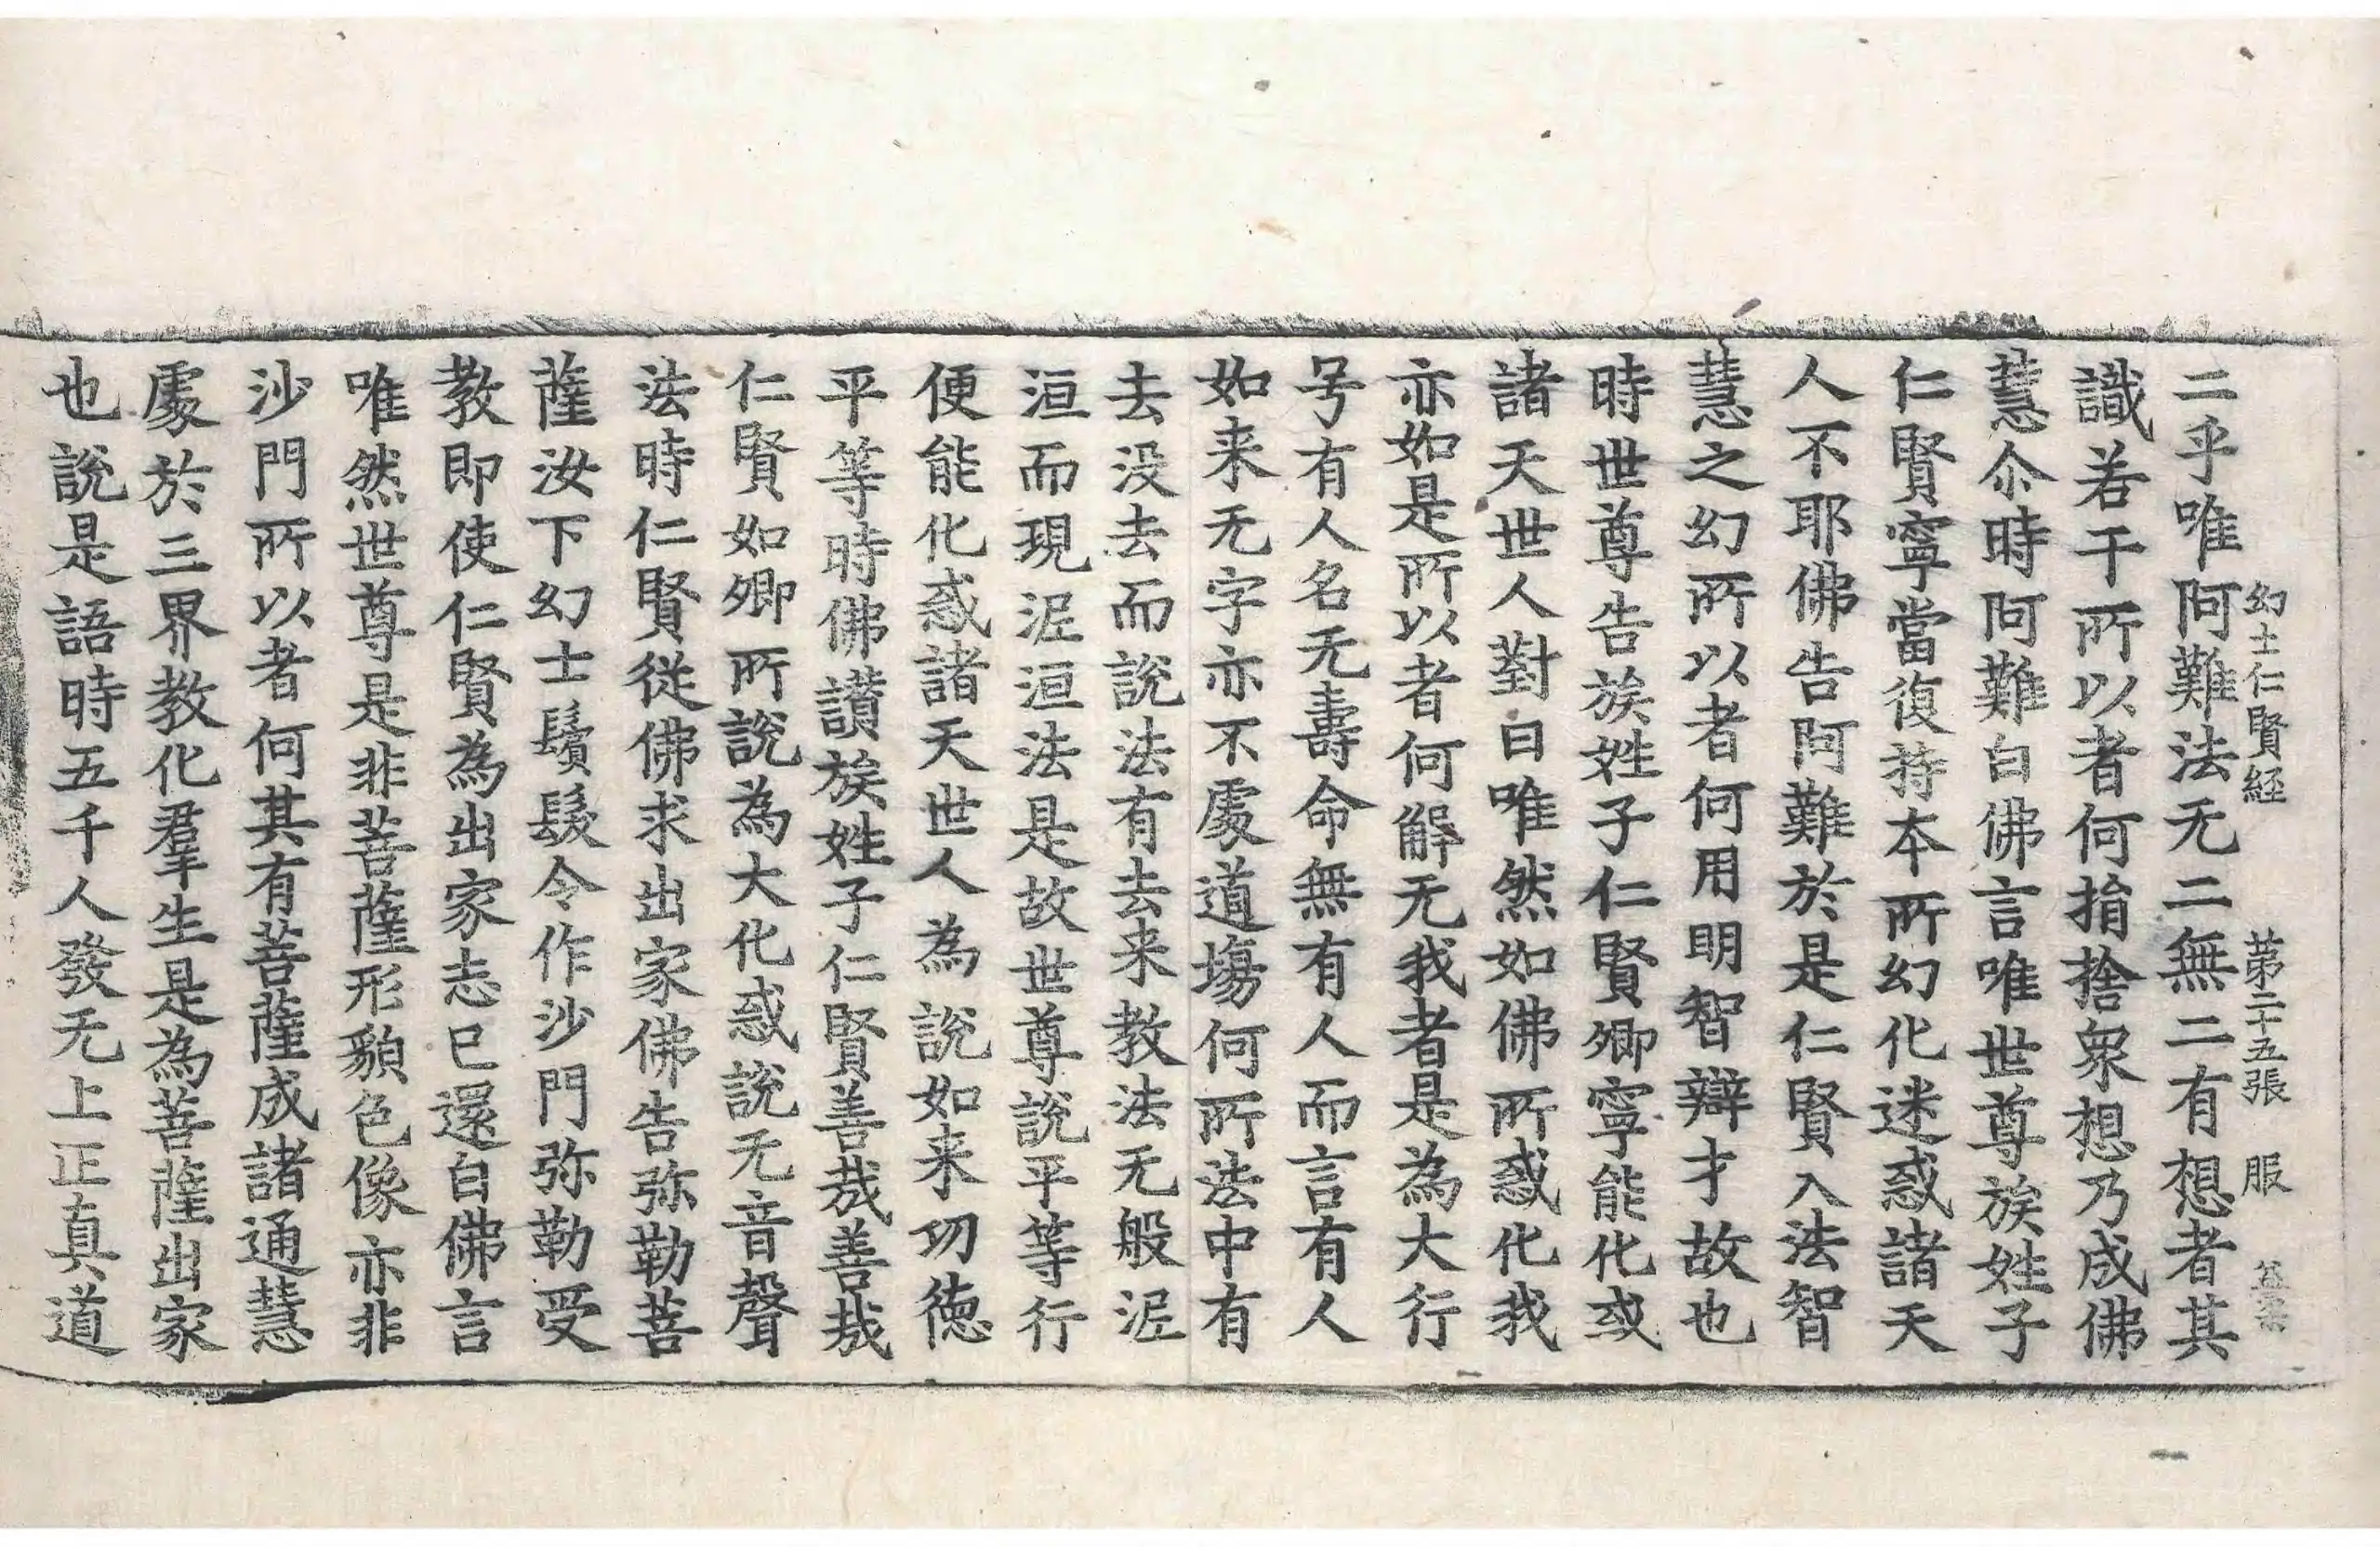 幻士仁賢経　第二十五張　服
二乎唯阿難法无二無二有想者其
識若干所以者何捐捨衆想乃成佛
慧尒時阿難白佛言唯世尊族姓子
仁賢寧當復持本所幻化迷惑諸天
人不耶佛告阿難於是仁賢入法智
慧之幻所以者何用明智辯才故也
時世尊告族姓子仁賢卿寧能化或
諸天世人對曰唯然如佛所惑化我
亦如是所以者何解无我者是為大行
号有人名无壽命無有人而言有人
如来无字亦不處道塲何所法中有
去没去而說法有去来教法无般泥
洹而現泥洹法是故世尊說平等行
便能化惑諸天世人為說如来功徳
平等時佛讃族姓子仁賢善㢤善㢤
仁賢如卿所說為大化惑說无音聲
法時仁賢從佛求出家佛告弥勒菩
薩汝下幻士鬚髮令作沙門弥勒受
教即使仁賢為出家志已還白佛言
唯然世尊是非菩薩形貌色像亦非
沙門所以者何其有菩薩成諸通慧
處於三界教化羣生是為菩薩出家
也說是語時五千人發无上正真道